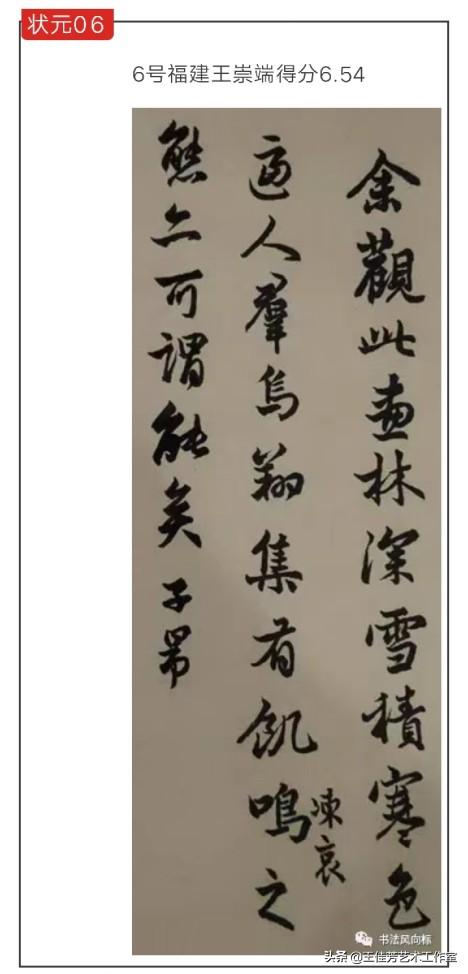 状元06
6号福建王崇端得分6.54
余觀此畫林深雪積寒色
逼人羣鳥翔集有飢鳴之
凍哀
態亦可謂能矣 子昂
书法风向标
头条 @王佳芳艺术工作室